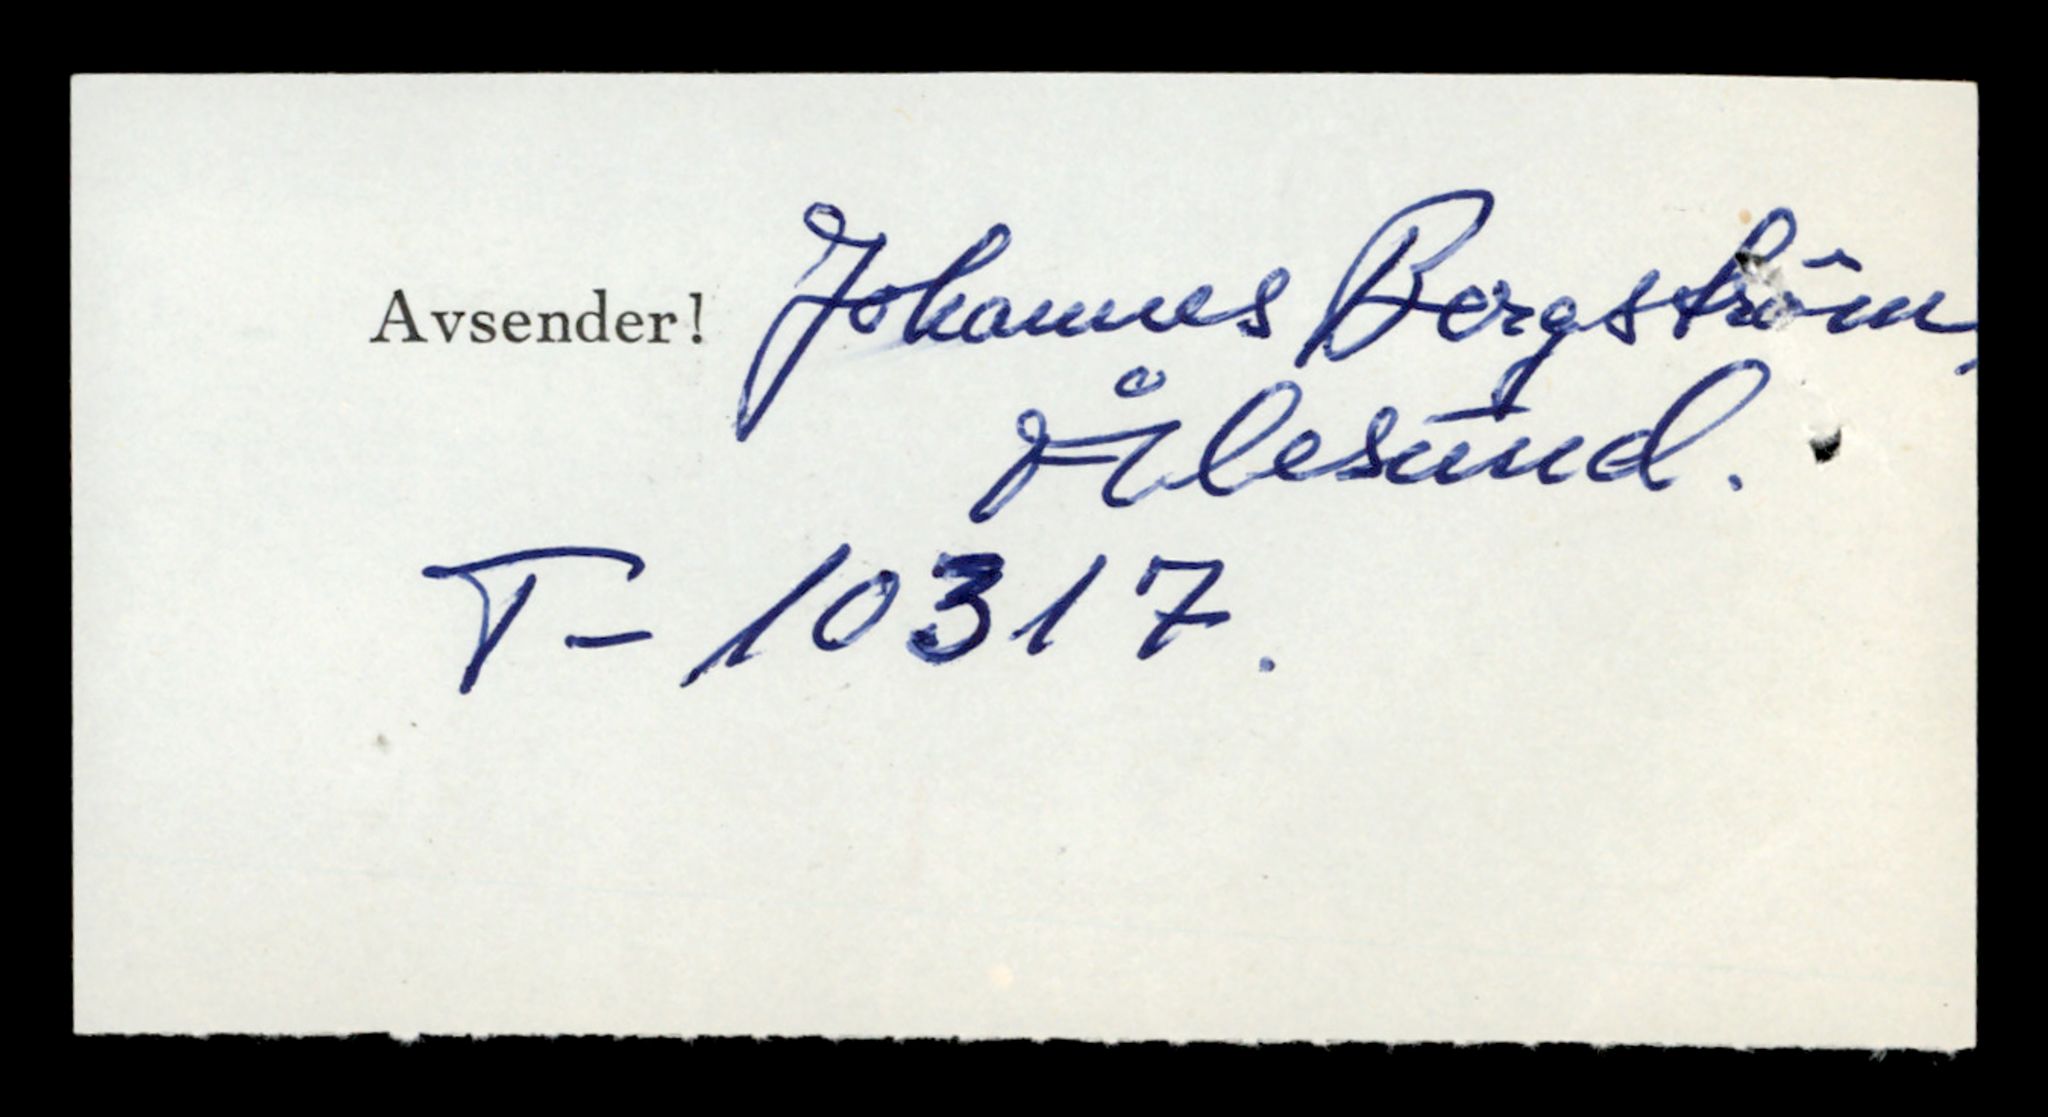 Avsender! Johannes Bergström,
Ålesund.
T- 10317.